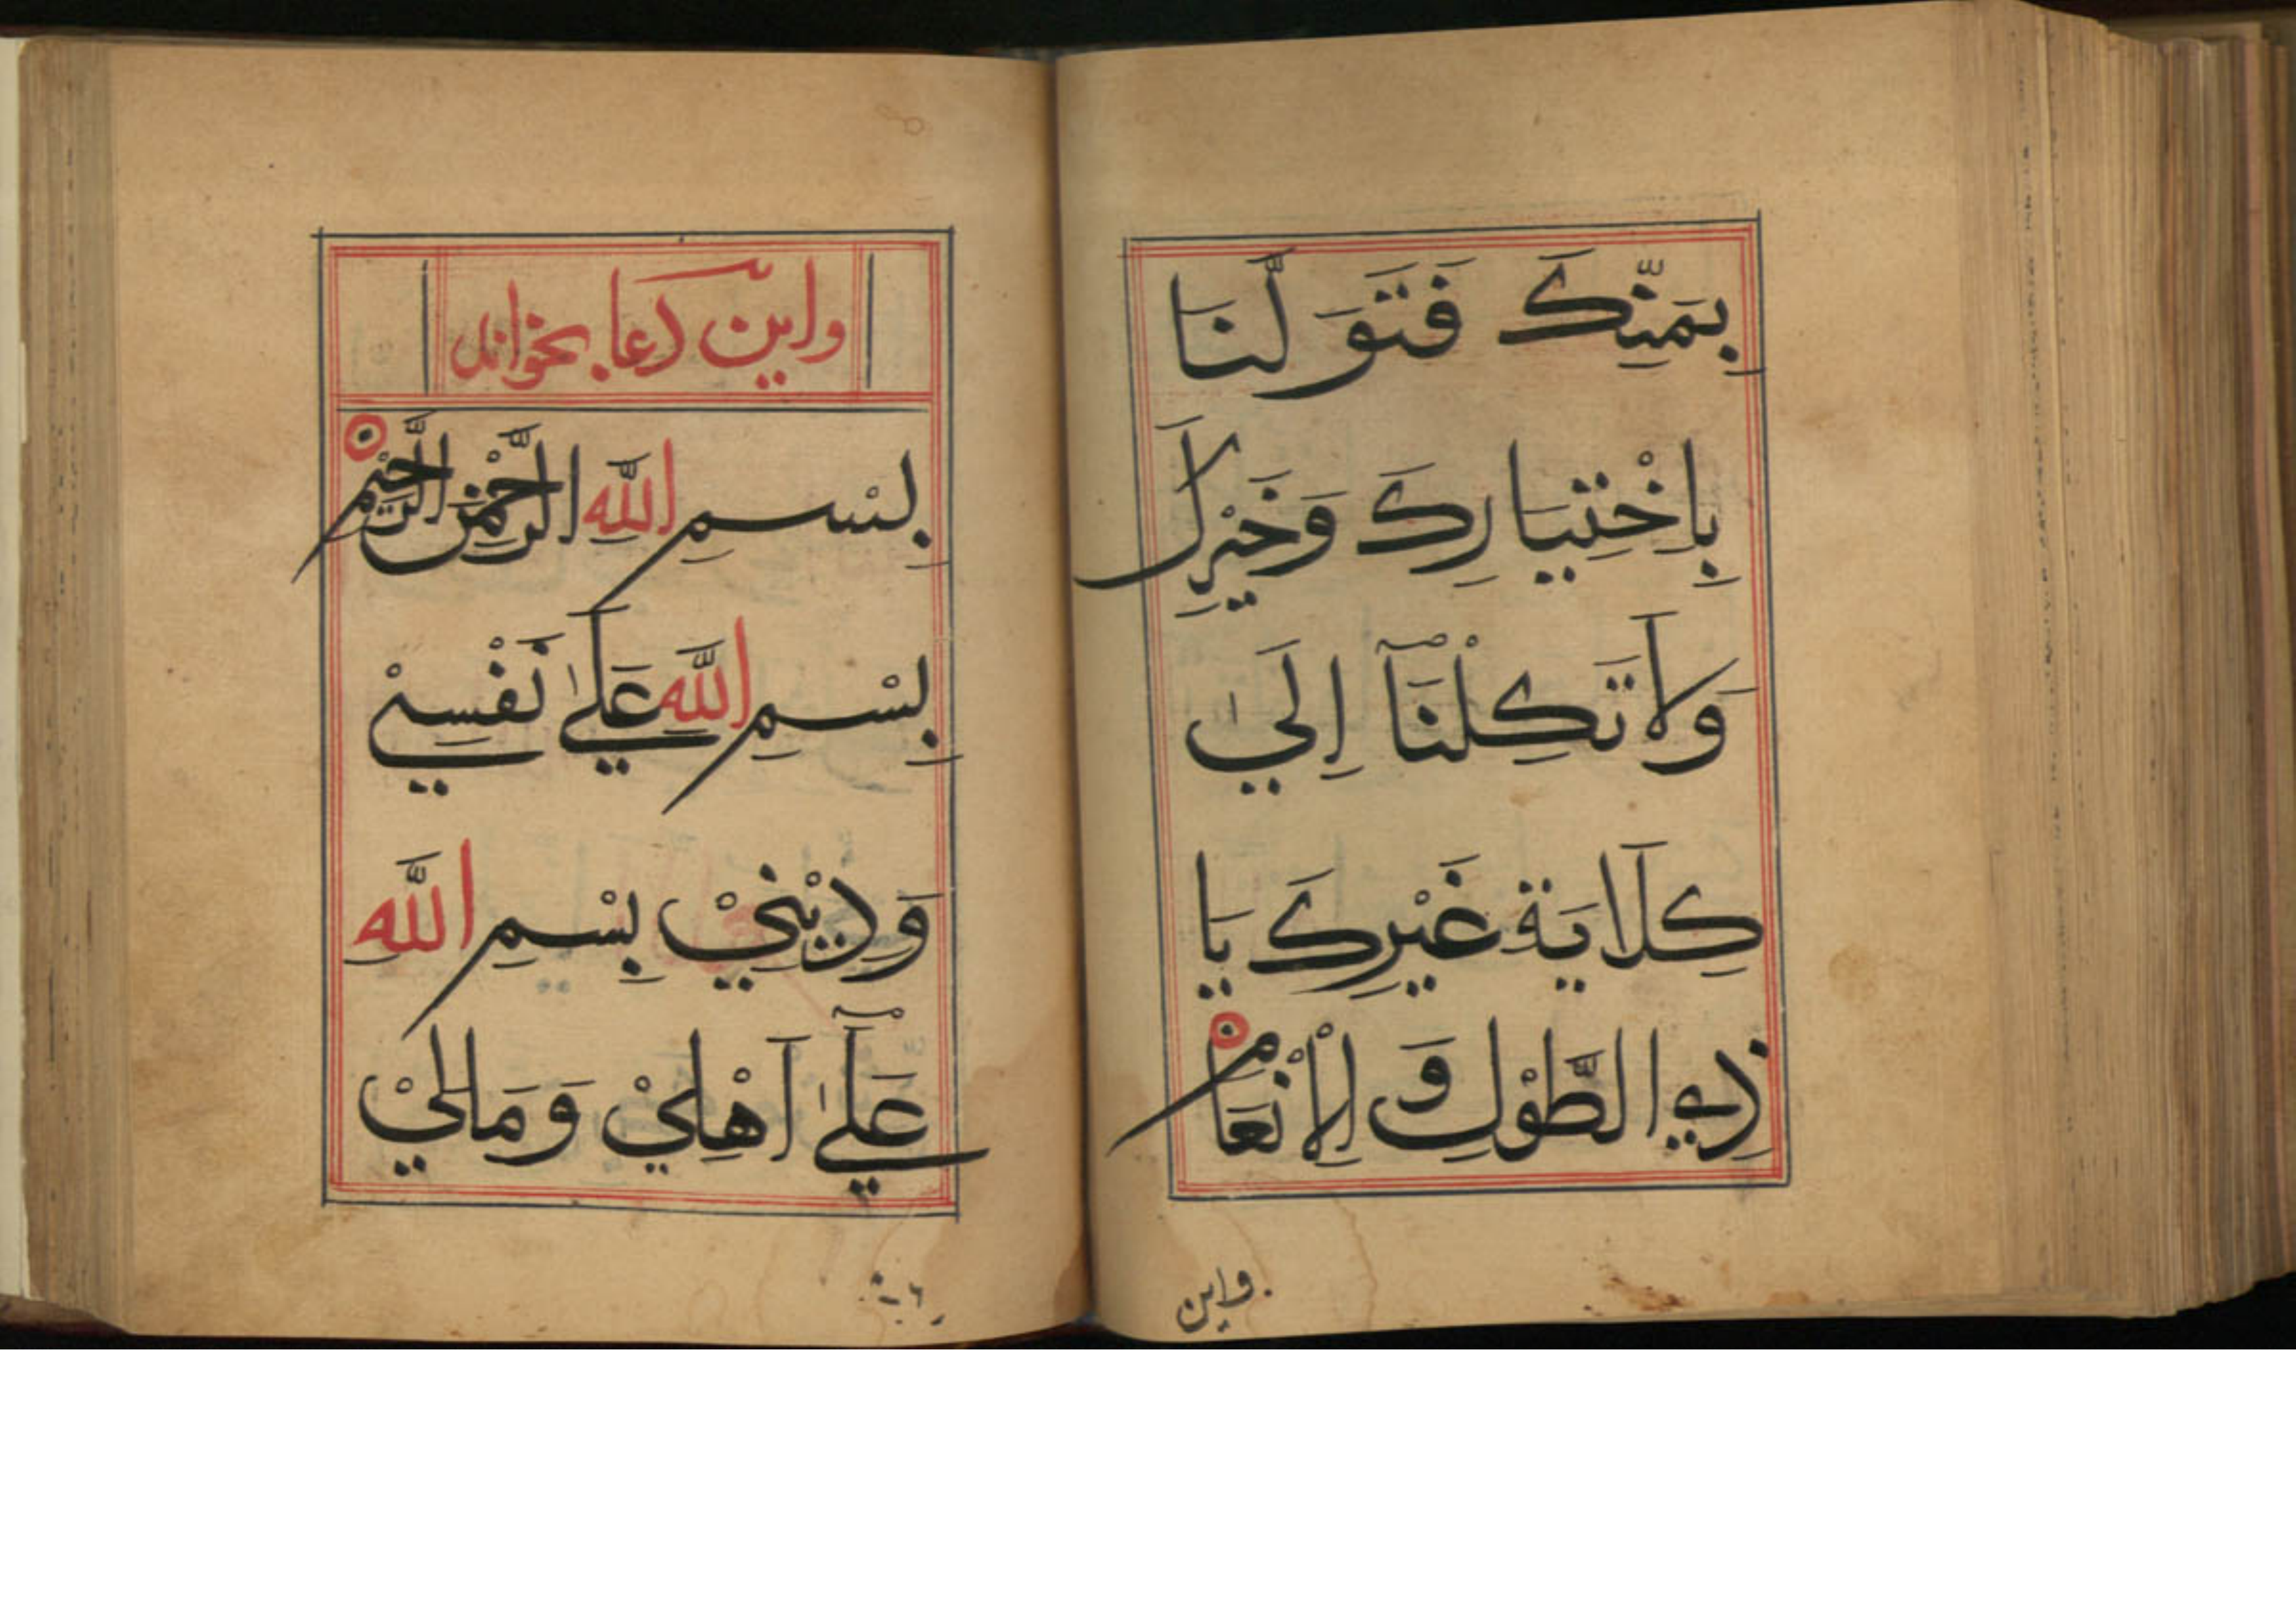 بِمَنِّكَ فَتَوَلَّنَا
بِاِخْتِيَارِكَ وَخَيْرِكَ
وَلَا تَكِلْنَآ اِلَيٰ
كِلَايَةِ غَيْرِكَ يَا
ذِي الطَّوْلِ وَ الْاِنْعَامْ
واین
واین دعا بخواند
بِسْمِ اللهِ الرَّحْمٰنِ الرَّحِيْمِ
بِسْمِ اللهِ عَلَيٰ نَفْسِيْ
وَدِيْنِيْ بِسْمِ اللهِ
عَلَيٰٓ اَهْلِيْ وَمَالِيْ